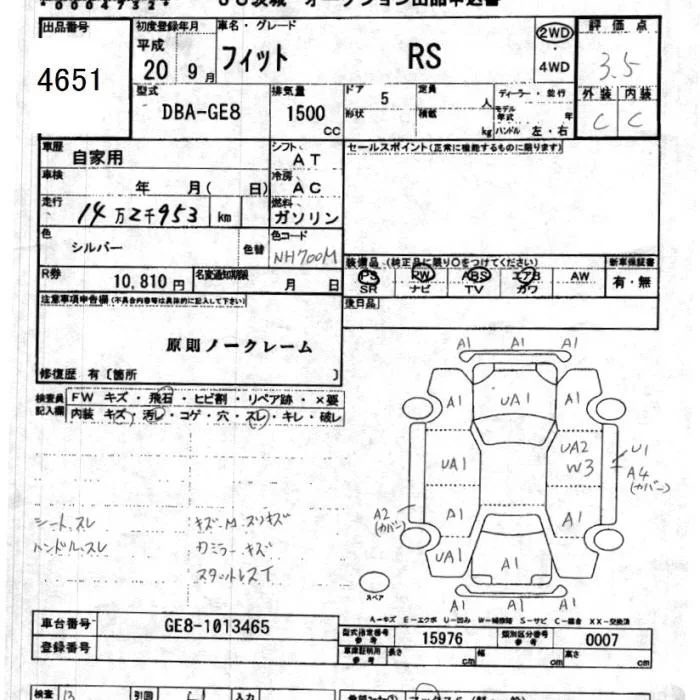 *00047327*
JU茨城 オークション出品申込書
出品番号 初度登録年月 車名・グレード 2WD 評価点
4651 平成 20 9月 フィット RS 4WD 3.5
型式 排気量 ドア 5 定員 人 ディーラー・並行 外装 内装
DBA-GE8 1500 cc 形状 積載 kg モデル年式 年 C C
ハンドル 左・右
車歴 自家用 シフト AT セールスポイント(正常に機能するものに限ります)
車検 年 月( 日) 冷房 AC
走行 14万2千953 km 燃料 ガソリン
色 シルバー 色替 色コード NH700M
装備品(純正品に限り○をつけてください) 新車保証書
PS RW ABS エアB AW 有・無
SR ナビ TV カワ
R券 10,810円 名変通知期限 月 日
後日品
注意事項申告欄(不具合内容等は具体的に記入して下さい)
原則ノークレーム
修復歴 有〔箇所 〕
検査員記入欄 FW キズ・飛石・ヒビ割・リペア跡・×要
内装 キズ・汚レ・コゲ・穴・スレ・キレ・破レ
A1 A1 A1
A1 UA1 A1
UA1 UA2 W3 U1 A4 (カバー)
A2 (カバー) A1 A1
UA1 A1 A1
A1 A1 A1
シートスレ
ハンドルスレ
ミラーキズ
スタットレスT
スペア
A-キズ E-エクボ U-凹み W-補修跡 S-サビ C-腐食 XX-交換済
車台番号 GE8-1013465
登録番号
型式指定番号 参考 15976 類別区分番号 参考 0007
車庫証明用 参考 長さ cm 幅 cm 高さ cm
検査 引回 入力